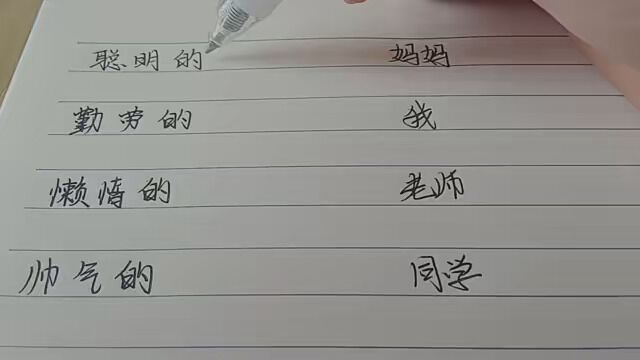 聪明的 妈妈
勤劳的 我
懒惰的 老师
帅气的 同学